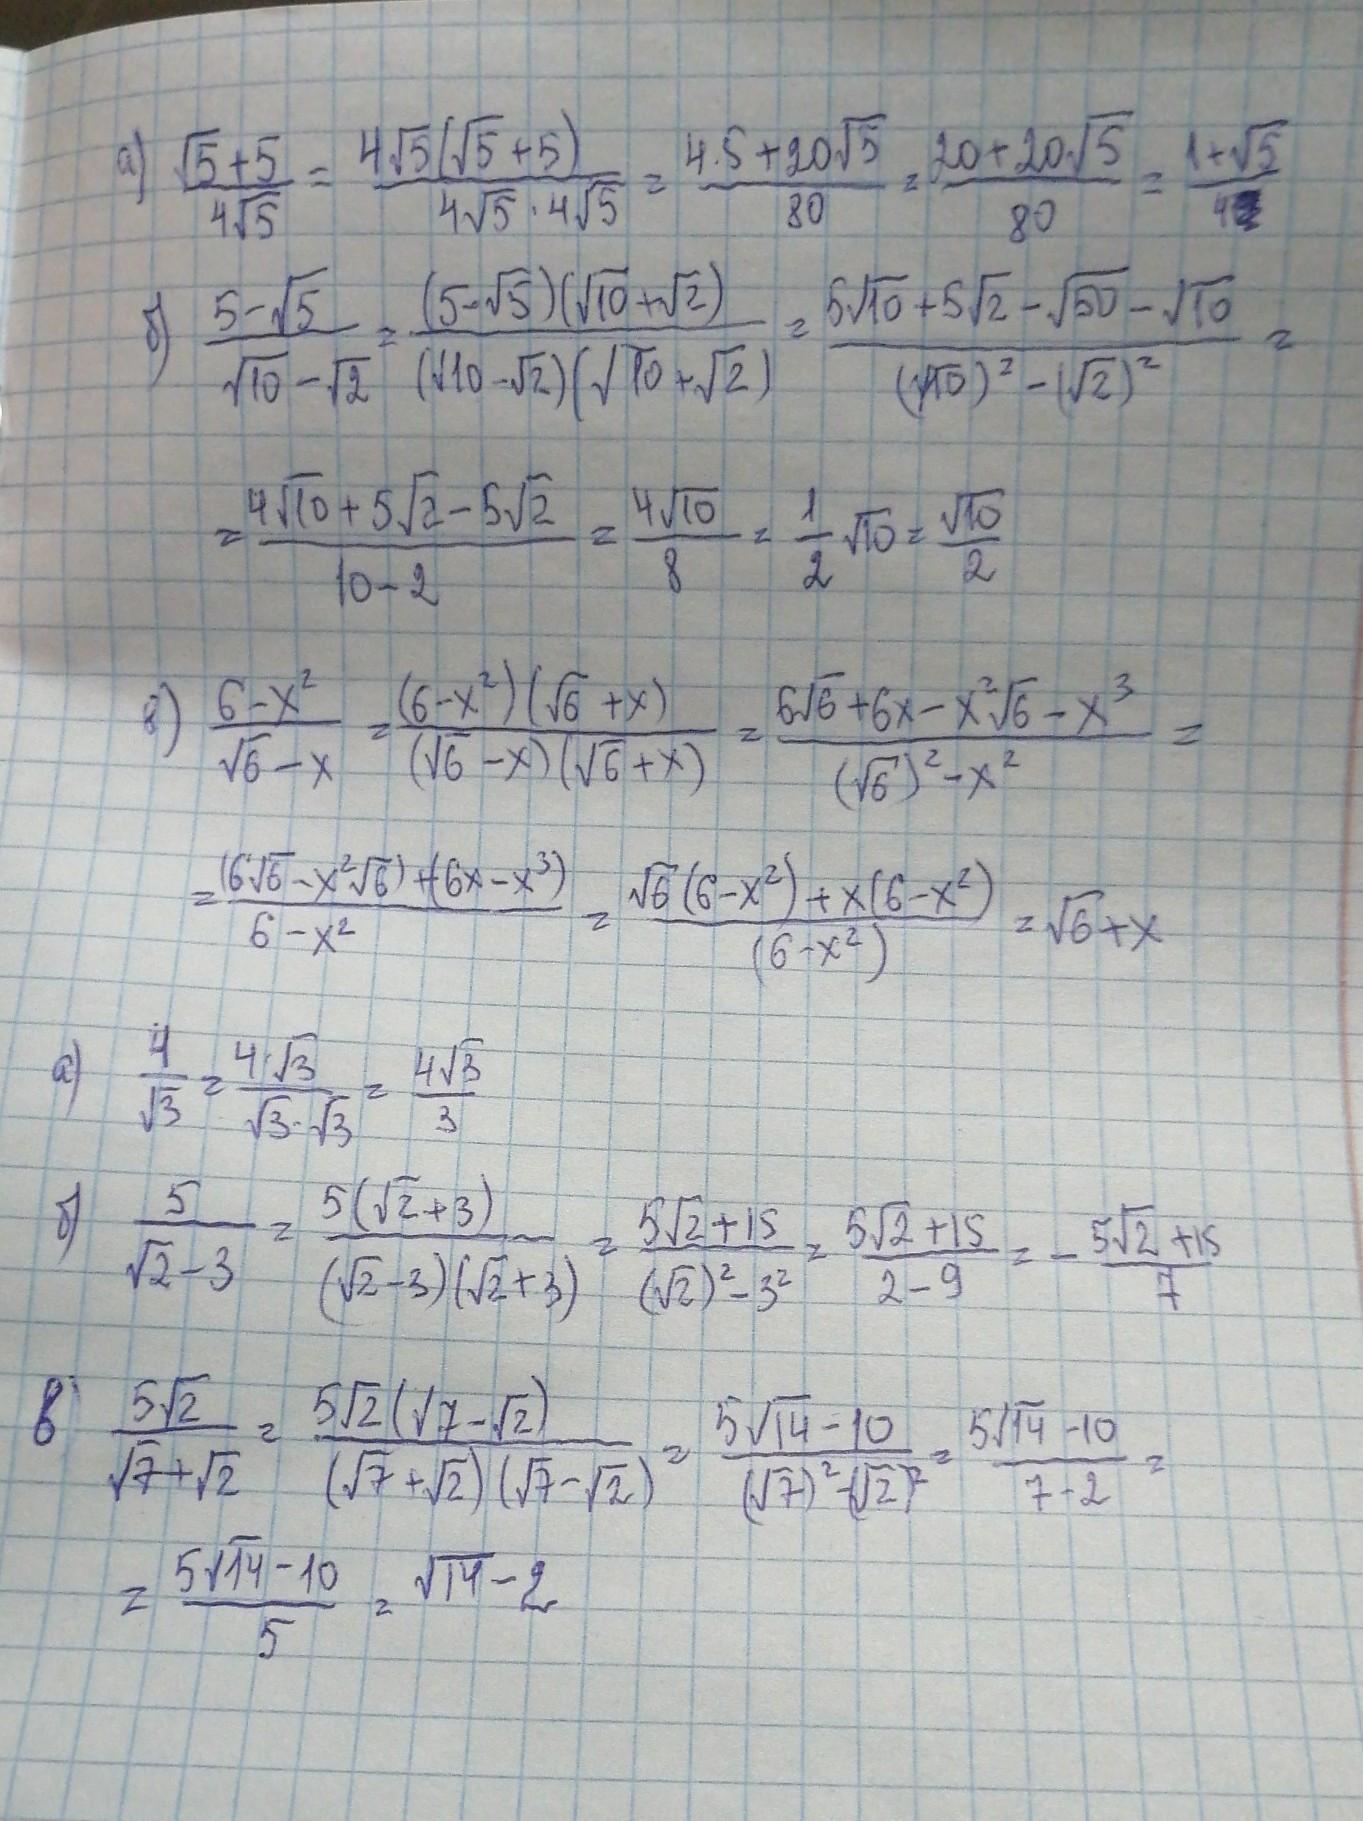 а) (√5+5)/(4√5) = (4√5(√5+5))/(4√5·4√5) = (4·5+20√5)/80 = (20+20√5)/80 = (1+√5)/4
б) (5-√5)/(√10-√2) = ((5-√5)(√10+√2))/((√10-√2)(√10+√2)) = (5√10+5√2-√50-√10)/((√10)²-(√2)²) =
= (4√10+5√2-5√2)/(10-2) = (4√10)/8 = 1/2 √10 = √10/2
в) (6-x²)/(√6-x) = ((6-x²)(√6+x))/((√6-x)(√6+x)) = (6√6+6x-x²√6-x³)/((√6)²-x²) =
= ((6√6-x²√6)+(6x-x³))/(6-x²) = (√6(6-x²)+x(6-x²))/(6-x²) = √6+x
а) 4/√3 = (4·√3)/(√3·√3) = (4√3)/3
б) 5/(√2-3) = (5(√2+3))/((√2-3)(√2+3)) = (5√2+15)/((√2)²-3²) = (5√2+15)/(2-9) = -(5√2+15)/7
в (5√2)/(√7+√2) = (5√2(√7-√2))/((√7+√2)(√7-√2)) = (5√14-10)/((√7)²-(√2)²) = (5√14-10)/(7-2) =
= (5√14-10)/5 = √14-2